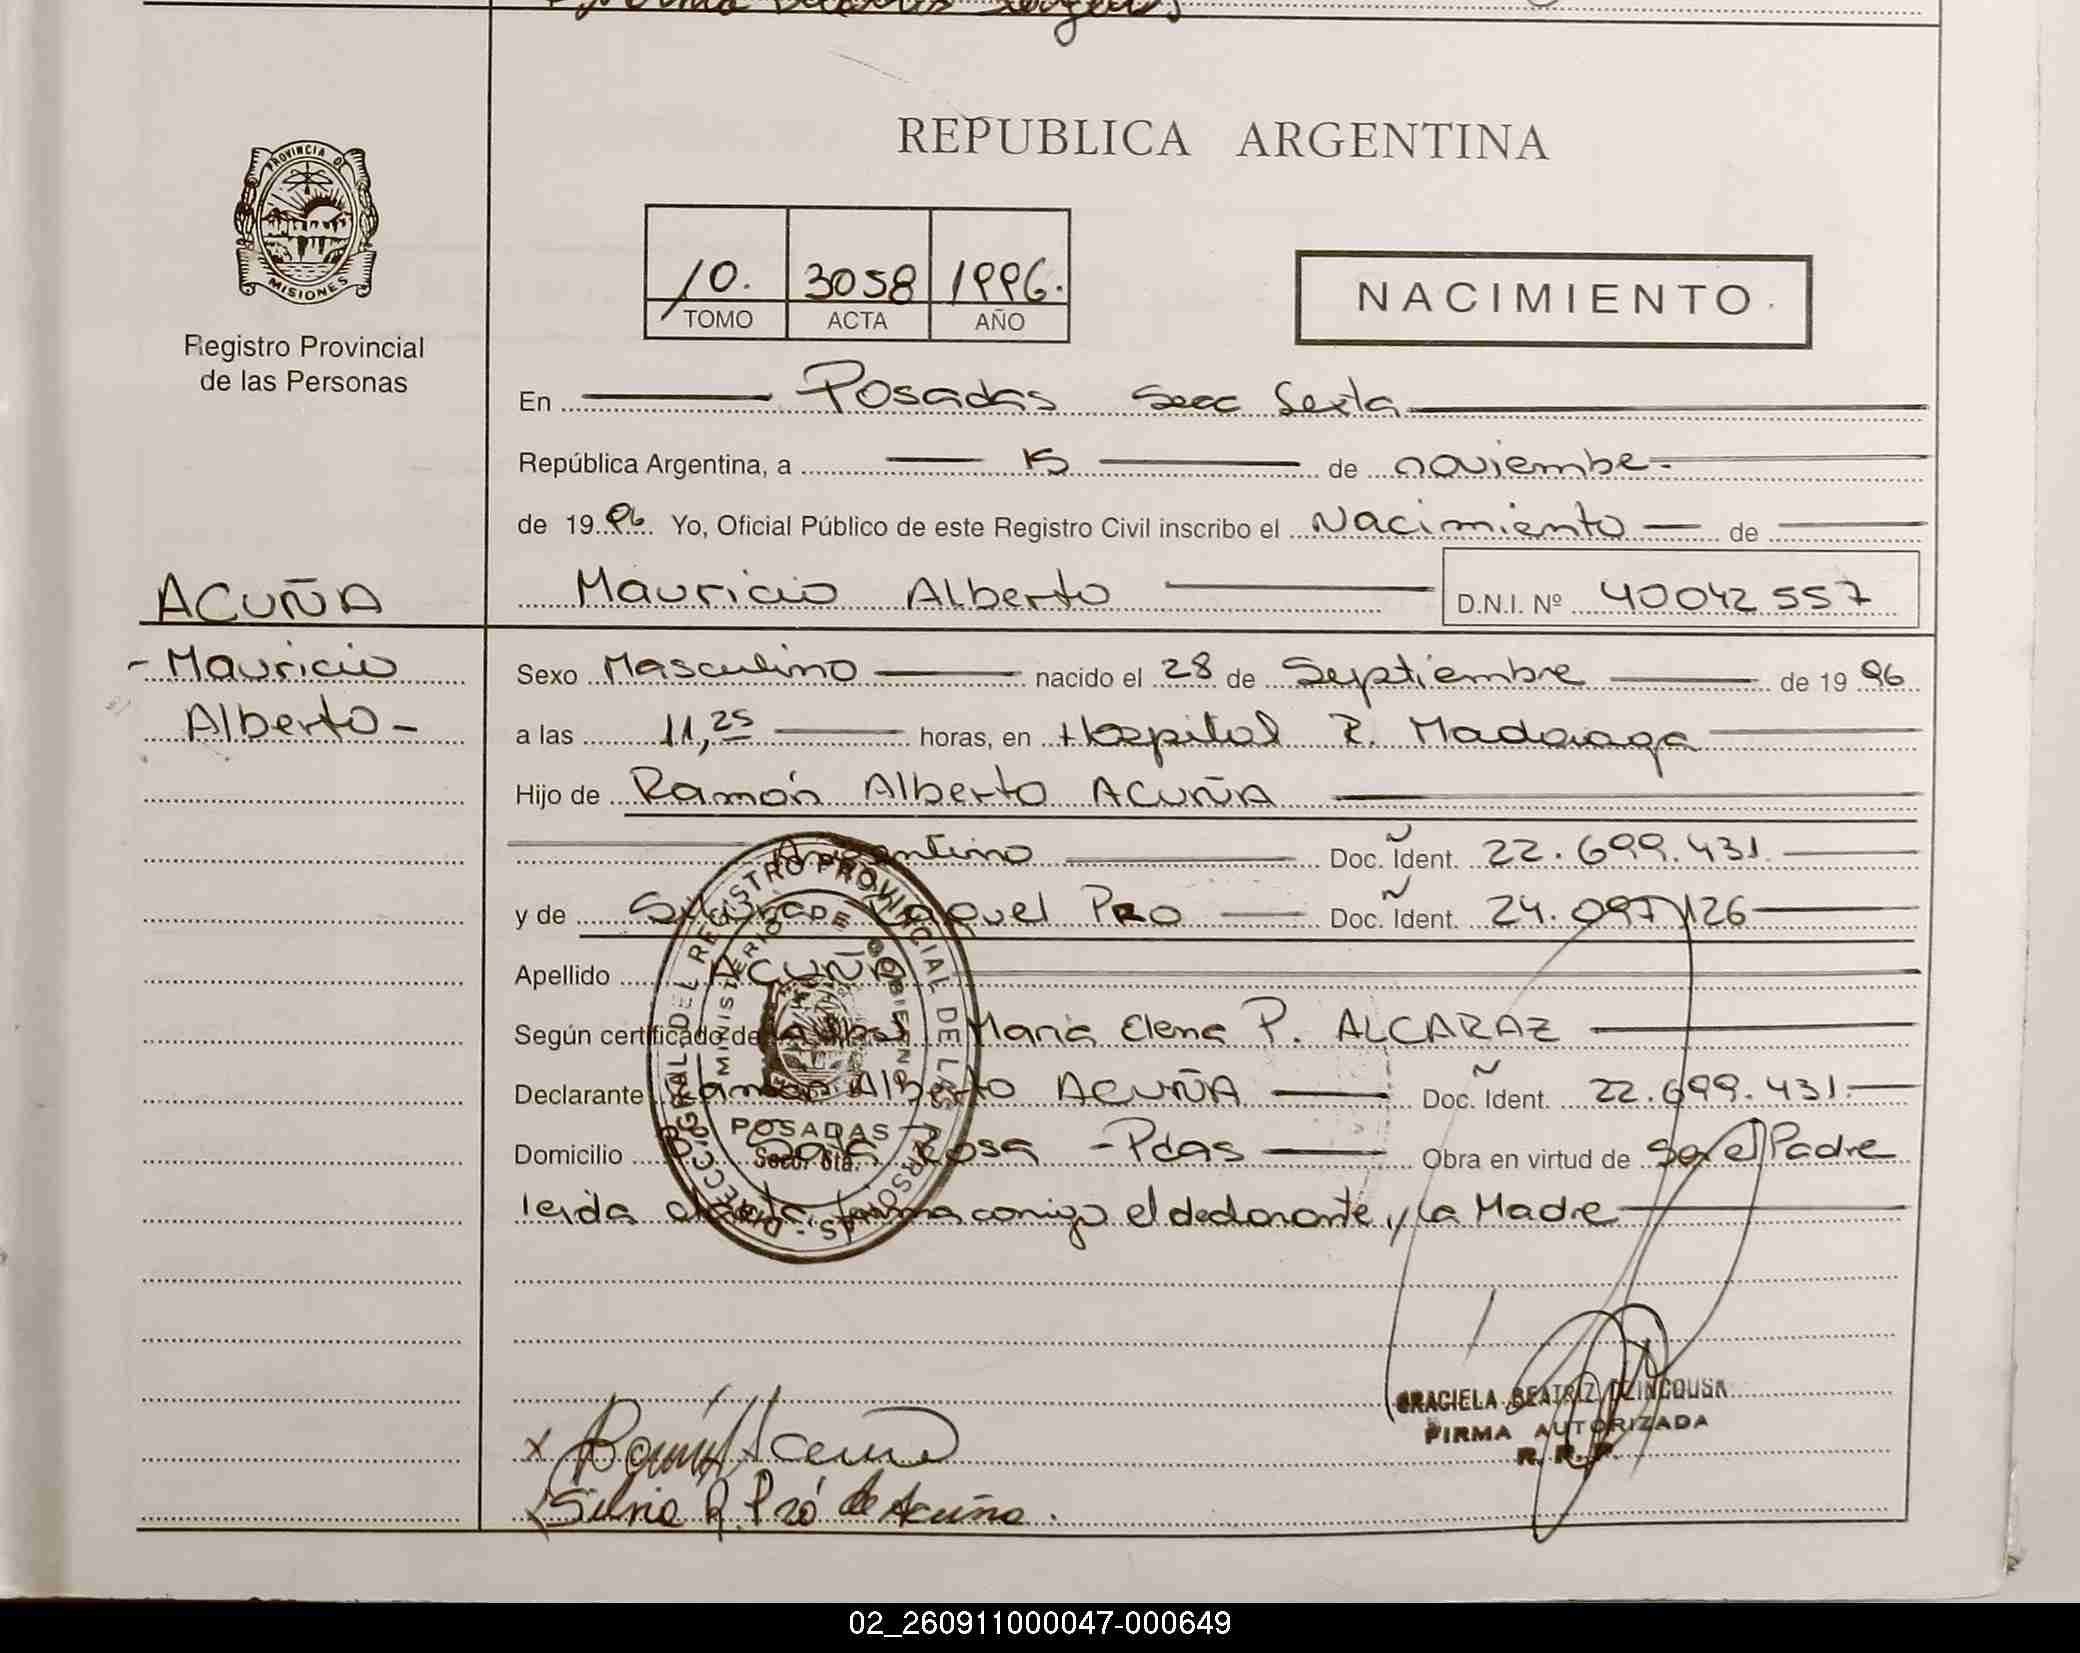 REPUBLICA ARGENTINA
PROVINCIA DE
MISIONES
Registro Provincial
de las Personas
10. 3058 1996.
TOMO ACTA AÑO
NACIMIENTO
En Posadas Secc Sexta
República Argentina, a 15 de noviembe.
de 1996. Yo, Oficial Público de este Registro Civil inscribo el Nacimiento de
ACUÑA
Mauricio Alberto D.N.I. Nº 40042557
- Mauricio
Alberto -
Sexo Masculino nacido el 28 de Septiembre de 1996
a las 11,25 horas, en Hospital R. Madariaga
Hijo de Ramón Alberto ACUÑA
Argentino Doc. Ident. 22.699.431.
y de Silvia Raquel PRO Doc. Ident. 24.097.126
Apellido ACUÑA
Según certificado de María Elena P. ALCARAZ
Declarante Ramón Alberto ACUÑA Doc. Ident. 22.699.431.
Domicilio Bº Santa Rosa - Pdas Obra en virtud de Ser el Padre
leida el acta, firma conmigo el declarante y la Madre
DIRECC. GRAL. DEL REGISTRO PROVINCIAL DE LAS PERSONAS
MINISTERIO DE GOBIERNO
POSADAS
Secc. 6ta.
GRACIELA BEATRIZ
FIRMA AUTORIZADA
R. R. P.
x Ramón Acuña
x Silvia R. Pró de Acuña.
02_260911000047-000649